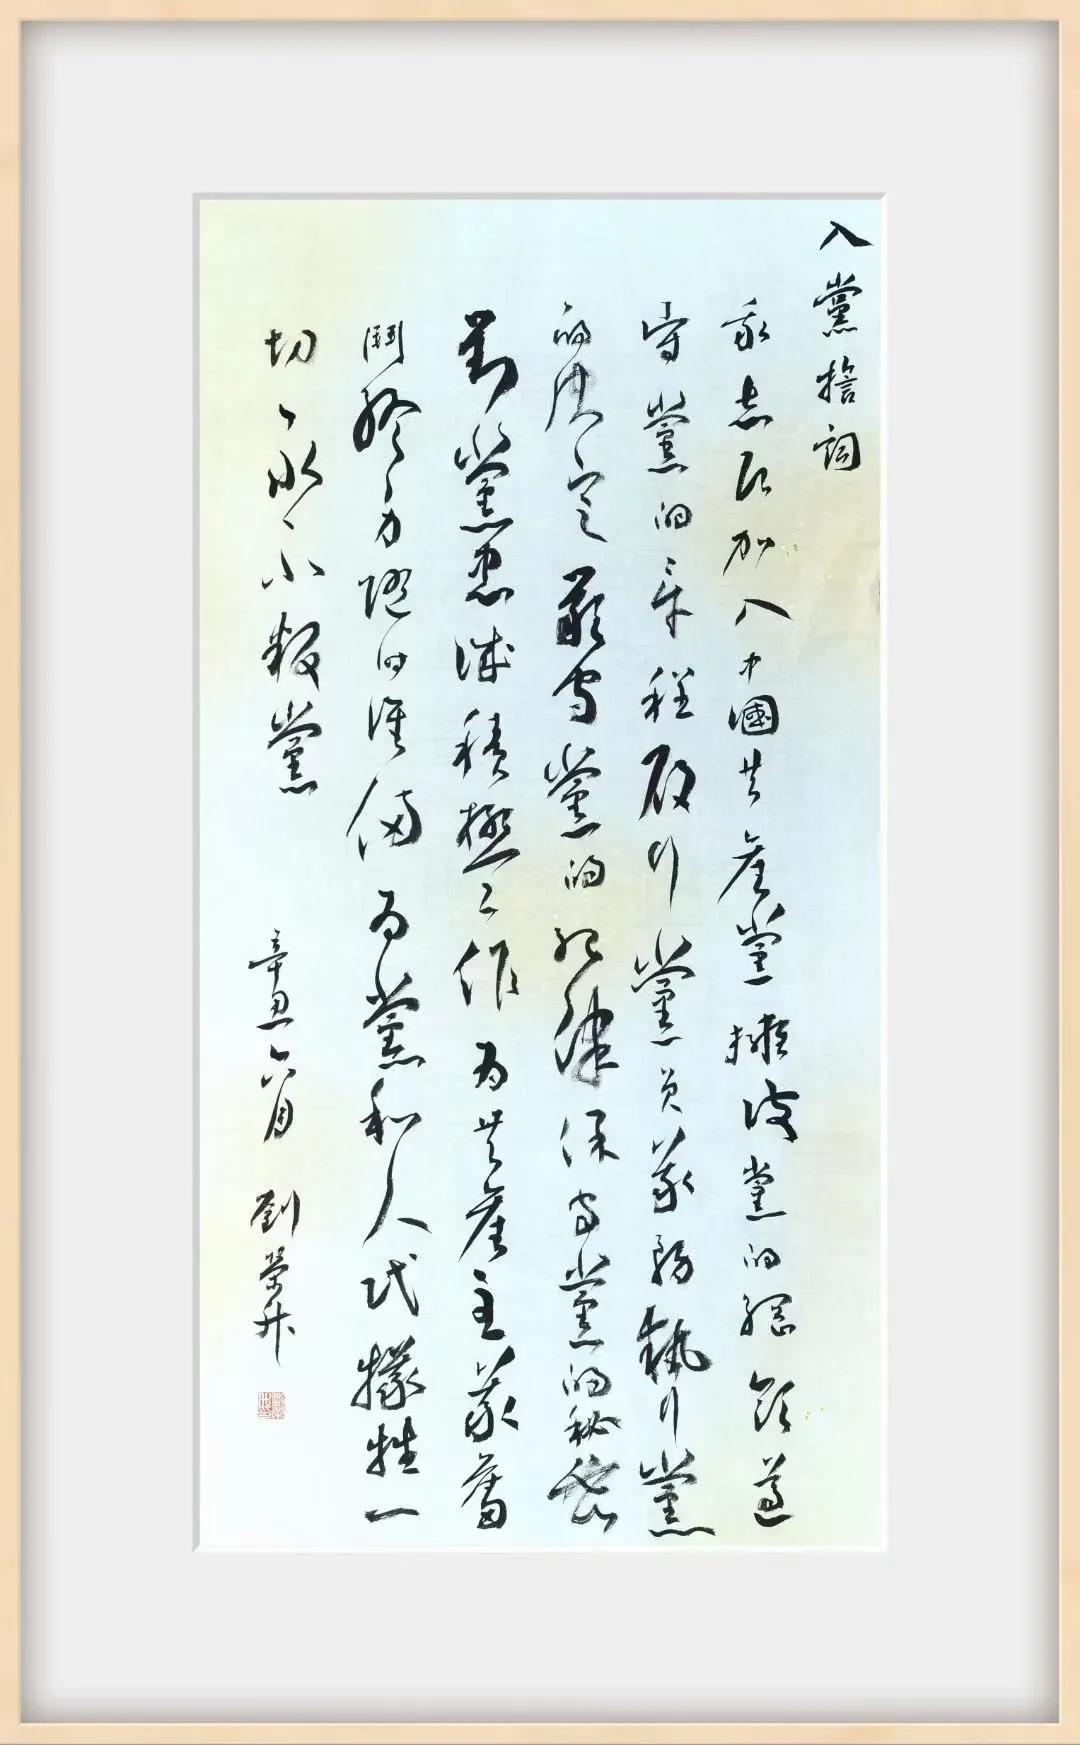 入黨誓詞
我志願加入中國共產黨擁護黨的綱領遵
守黨的章程履行黨員義務執行黨
的決定嚴守黨的紀律保守黨的秘密
對黨忠誠積極工作為共產主義奮
鬪終身隨時準備為黨和人民犧牲一
切永不叛黨
辛丑六月 劉榮升